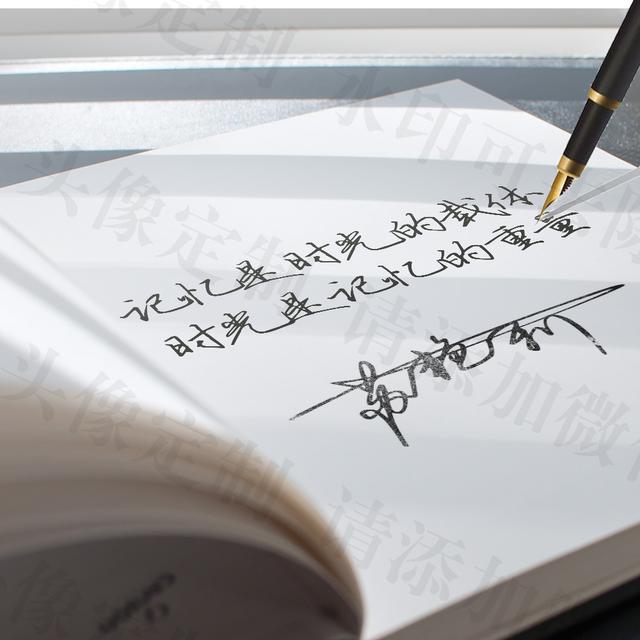 头像定制 水印可去除
记忆是时光的载体
时光是记忆的重量
头像定制 请添加微信
头像定制 请添加